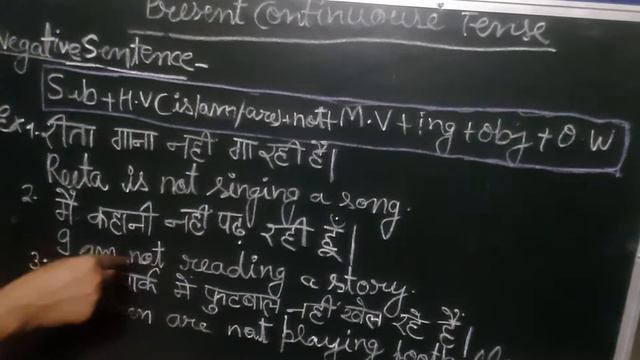 Present Continuouse Tense
Negative Sentence-
Sub+H.V(is/am/are)+not+M.V+ing+obj+O.W
Ex 1. रीता गाना नही गा रही है|
Reeta is not singing a song.
2. मैं कहानी नही पढ़ रही हूँ|
I am not reading a story.
3. पार्क मे फुटबाल नही खेल रहे हैं|
are not playing